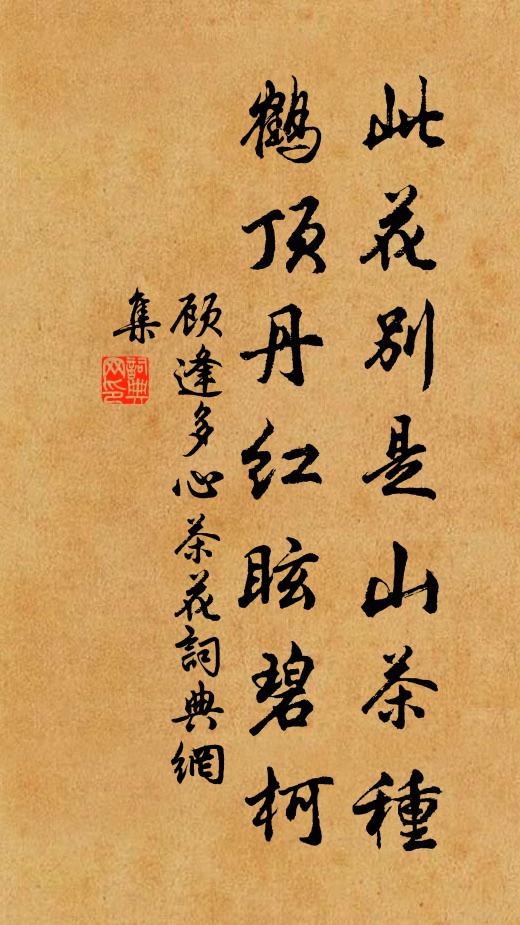 此花別是山茶種
鶴顶丹红眩碧柯
顾逢多心茶花詞典網
集
詞典网印